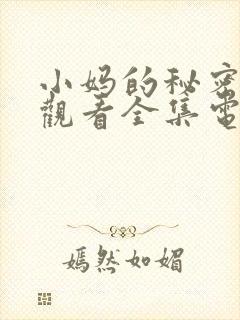 小妈的秘密
觀看全集電
嫣然如媚